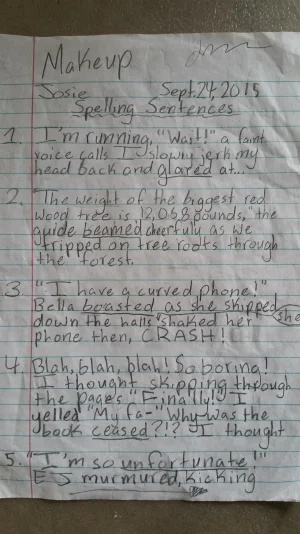 Makeup
Josie Sept. 24 2015
Spelling Sentences
1. I'm running, "Wait!" a faint
voice calls I slowly jerk my
head back and glared at...
2. "The weight of the biggest red
wood tree is 12,068 pounds," the
guide beamed cheerfully as we
tripped on tree roots through
the forest.
3. "I have a curved phone!"
Bella boasted as she skipped
down the halls shaked her she
phone then, CRASH!
4. Blah, blah, blah! So boring!
I thought skipping through
the pages. "Finally!" I
yelled "My fa-" Why was the
book ceased?!? I thought
5. "I'm so unfortunate!"
EJ murmured, kicking